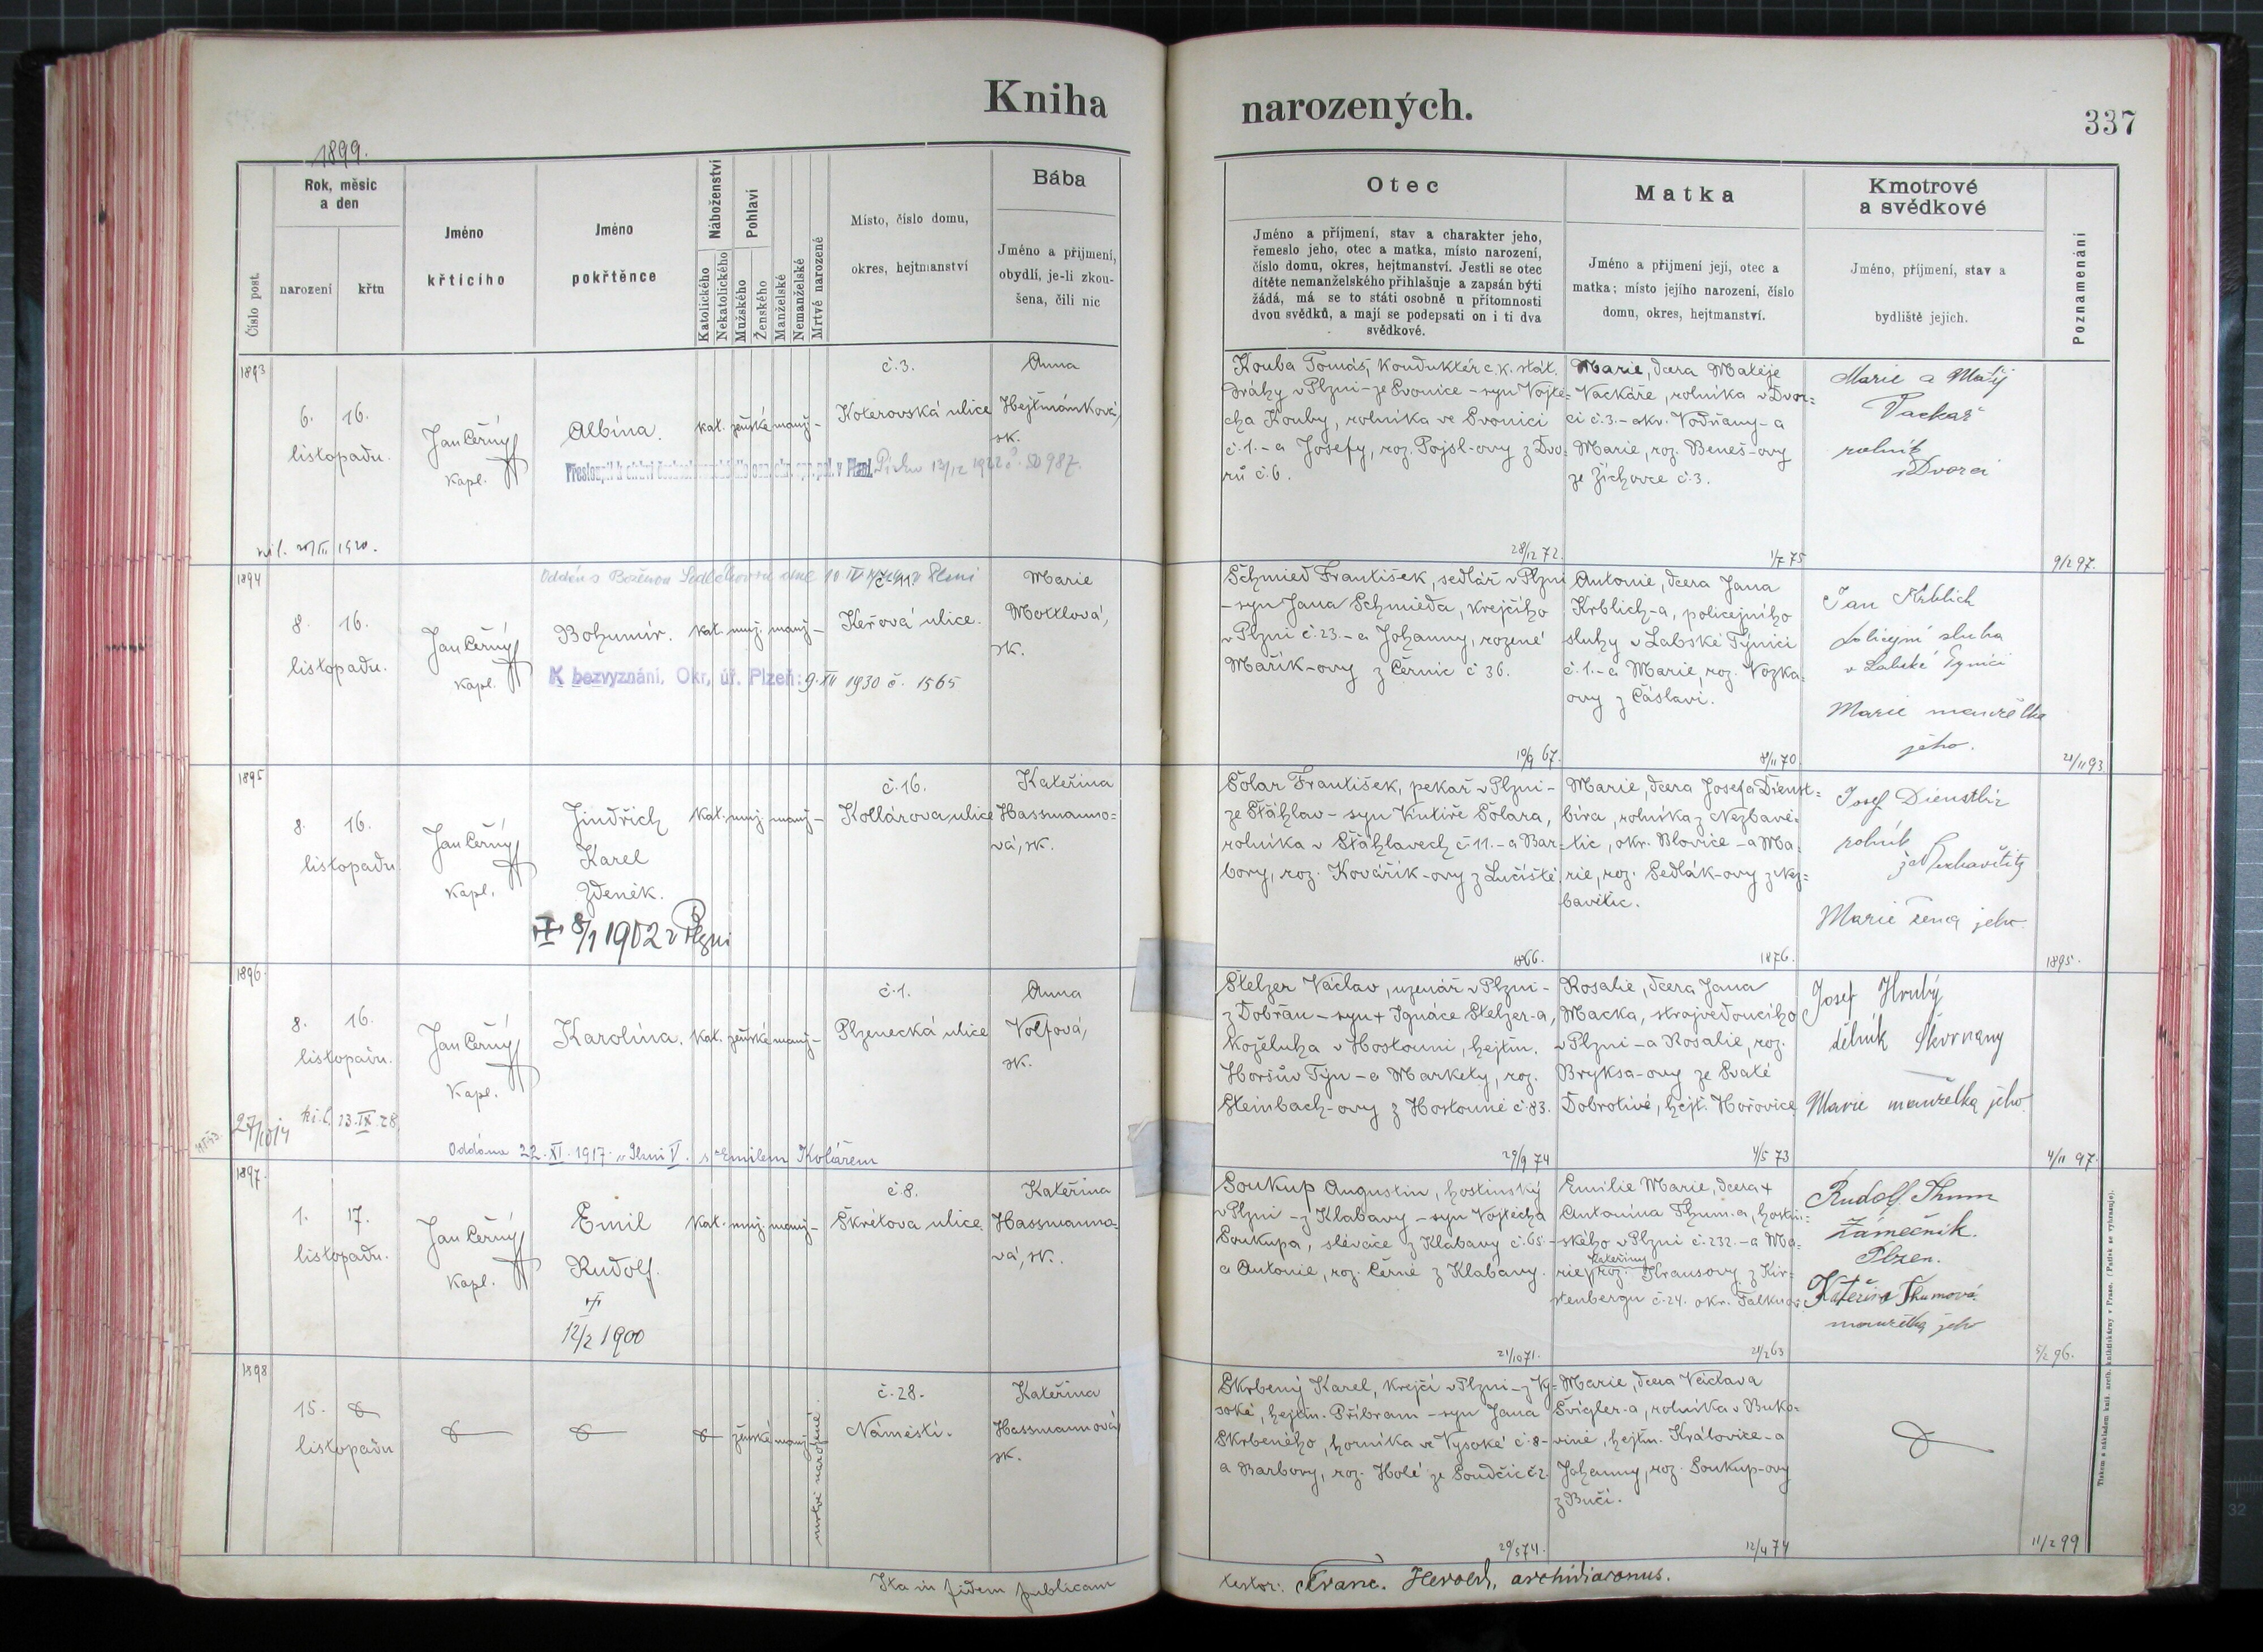 Kniha
narozených.
337
1899.
Číslo post.
Rok, měsíc
a den
narození
křtu
Jméno
křticího
Jméno
pokřtěnce
Náboženství
Katolického
Nekatolického
Pohlaví
Mužského
Ženského
Manželské
Nemanželské
Mrtvě narozené
Místo, číslo domu,
okres, hejtmanství
Bába
Jméno a příjmení,
obydlí, je-li zkou-
šena, čili nic
Otec
Jméno a příjmení, stav a charakter jeho,
řemeslo jeho, otec a matka, místo narození,
číslo domu, okres, hejtmanství. Jestli se otec
dítěte nemanželského přihlašuje a zapsán býti
žádá, má se to státi osobně u přítomnosti
dvou svědků, a mají se podepsati on i ti dva
svědkové.
Matka
Jméno a přijmení její, otec a
matka; místo jejího narození, číslo
domu, okres, hejtmanství.
Kmotrové
a svědkové
Jméno, příjmení, stav a
bydliště jejich.
Poznamenání
1893
6. 16.
listopadu.
Jan Černý
Kapl.
Albína.
kat. ženské manž-
č. 3.
Koterovská ulice
Anna
Hejtmánková,
zk.
13/12 1922 č. 50987.
1920.
Kouba Tomáš, Konduktér c. k. stát.
dráhy v Plzni - ze Svonice - syn Vojtě-
cha Kouby, rolníka ve Svonici
č. 1. - a Josefy, roz. Pojsl-ovy z Dvo-
rů č. 6.
28/12 72.
Marie, dcera Matěje
Vackáře, rolníka v Dvor=
ci č. 3. - okr. Vodňany - a
Marie, roz. Beneš-ovy
ze Žichovce č. 3.
1/7 75
Marie a Matěj
Vackář
rolník
v Dvorci
9/2 97.
1894
8. 16.
listopadu.
Jan Černý
Kapl.
Oddán s Boženou
Bohumír.
kat. muž. manž-
K bezvyznání, Okr. úř. Plzeň: 9. XII 1930 č. 1565
č. 11.
Keřová ulice.
Marie
Mottlová,
zk.
Schmied František, sedlář v Plzni
- syn Jana Schmieda, krejčího
v Plzni č. 23. - a Johanny, rozené
Mařík-ovy z Černic č. 36.
10/9 67.
Antonie, dcera Jana
Krblich-a, policejního
sluhy v Labské Týnici
č. 1. - a Marie, roz. Vozka=
ovy z Čáslavi.
8/11 70.
Jan Krblich
policejní sluha
v Labské Týnici
Marie manželka
jeho.
21/11 93.
1895
8. 16.
listopadu
Jan Černý
Kapl.
Jindřich
Karel
Zdeněk.
8/1 1902 v Plzni
kat. muž. manž-
č. 16.
Kollárova ulice
Kateřina
Hassmanno=
vá, zk.
Šolar František, pekař v Plzni -
ze Šťáhlav - syn Vintíře Šolara,
rolníka v Šťáhlavech č. 11. - a Bar-
bory, roz. Kovářík-ovy z Lučiště.
1866.
Marie, dcera Josefa Dienst=
bíra, rolníka z Nezbavě-
tic, okr. Blovice - a Ma-
rie, roz. Sedlák-ovy z Nez=
bavětic.
1876.
Josef Dienstbír
rolník
z Nezbavětitz
Marie žena jeho.
1895.
1896
8. 16.
listopadu.
Jan Černý
Kapl.
Karolína.
kat. ženské manž-
č. 1.
Plzenecká ulice
Anna
Volfová,
zk.
13. IX. 28.
Oddána 22. XI. 1917 v Plzni V. s Emilem Kolářem
Stelzer Václav, uzenář v Plzni -
z Dobřan - syn + Ignáce Stelzer-a,
koželuha v Hostouni, hejtm.
Horšův Týn - a Markety, roz.
Steinbach-ovy z Hostouně č. 83.
29/9 74
Rosalie, dcera Jana
Macka, strojvedoucího
v Plzni - a Rosalie, roz.
Bryksa-ovy ze Svaté
Dobrotivé, hejt. Hořovice
4/5 73
Josef Hrubý
dělník Škvrňany
Marie manželka jeho.
4/11 97.
1897.
1. 17.
listopadu.
Jan Černý
Kapl.
Emil
Rudolf.
12/2 1900
kat. muž. manž-
č. 8.
Škrétova ulice
Kateřina
Hassmanno-
vá, zk.
Soukup Augustin, hostinský
v Plzni - z Klabavy - syn Vojtěcha
Soukupa, slévače z Klabavy č. 65. -
a Antonie, roz. Černé z Klabavy.
21/10 71.
Emilie Marie, dcera +
Antonína Thum-a, hostin=
ského v Plzni č. 232. - a Ma=
rie Kateřiny roz. Krausovy z Kir=
stenbergu č. 24. okr. Falknov.
21/2 63
Rudolf Thum
Zámečník.
Plzen.
Kateřina Thumová
manželka jeho
5/2 96.
1898
15.
listopadu
ženské manž.
mrtvě narozené.
č. 28.
Náměstí.
Kateřina
Hassmannová,
zk.
Skrbený Karel, krejčí v Plzni - z Vy=
soké, hejtm. Příbram - syn Jana
Skrbeného, horníka ve Vysoké č. 8 -
a Barbory, roz. Holé ze Soudčic č. 2.
29/5 74.
Marie, dcera Václava
Švígler-a, rolníka v Buko-
vině, hejtm. Královice - a
Johanny, roz. Soukup-ovy
z Bučí.
12/4 74
11/2 99
Ita in fidem publicam
testor: Franc. Herold, archidiaconus.